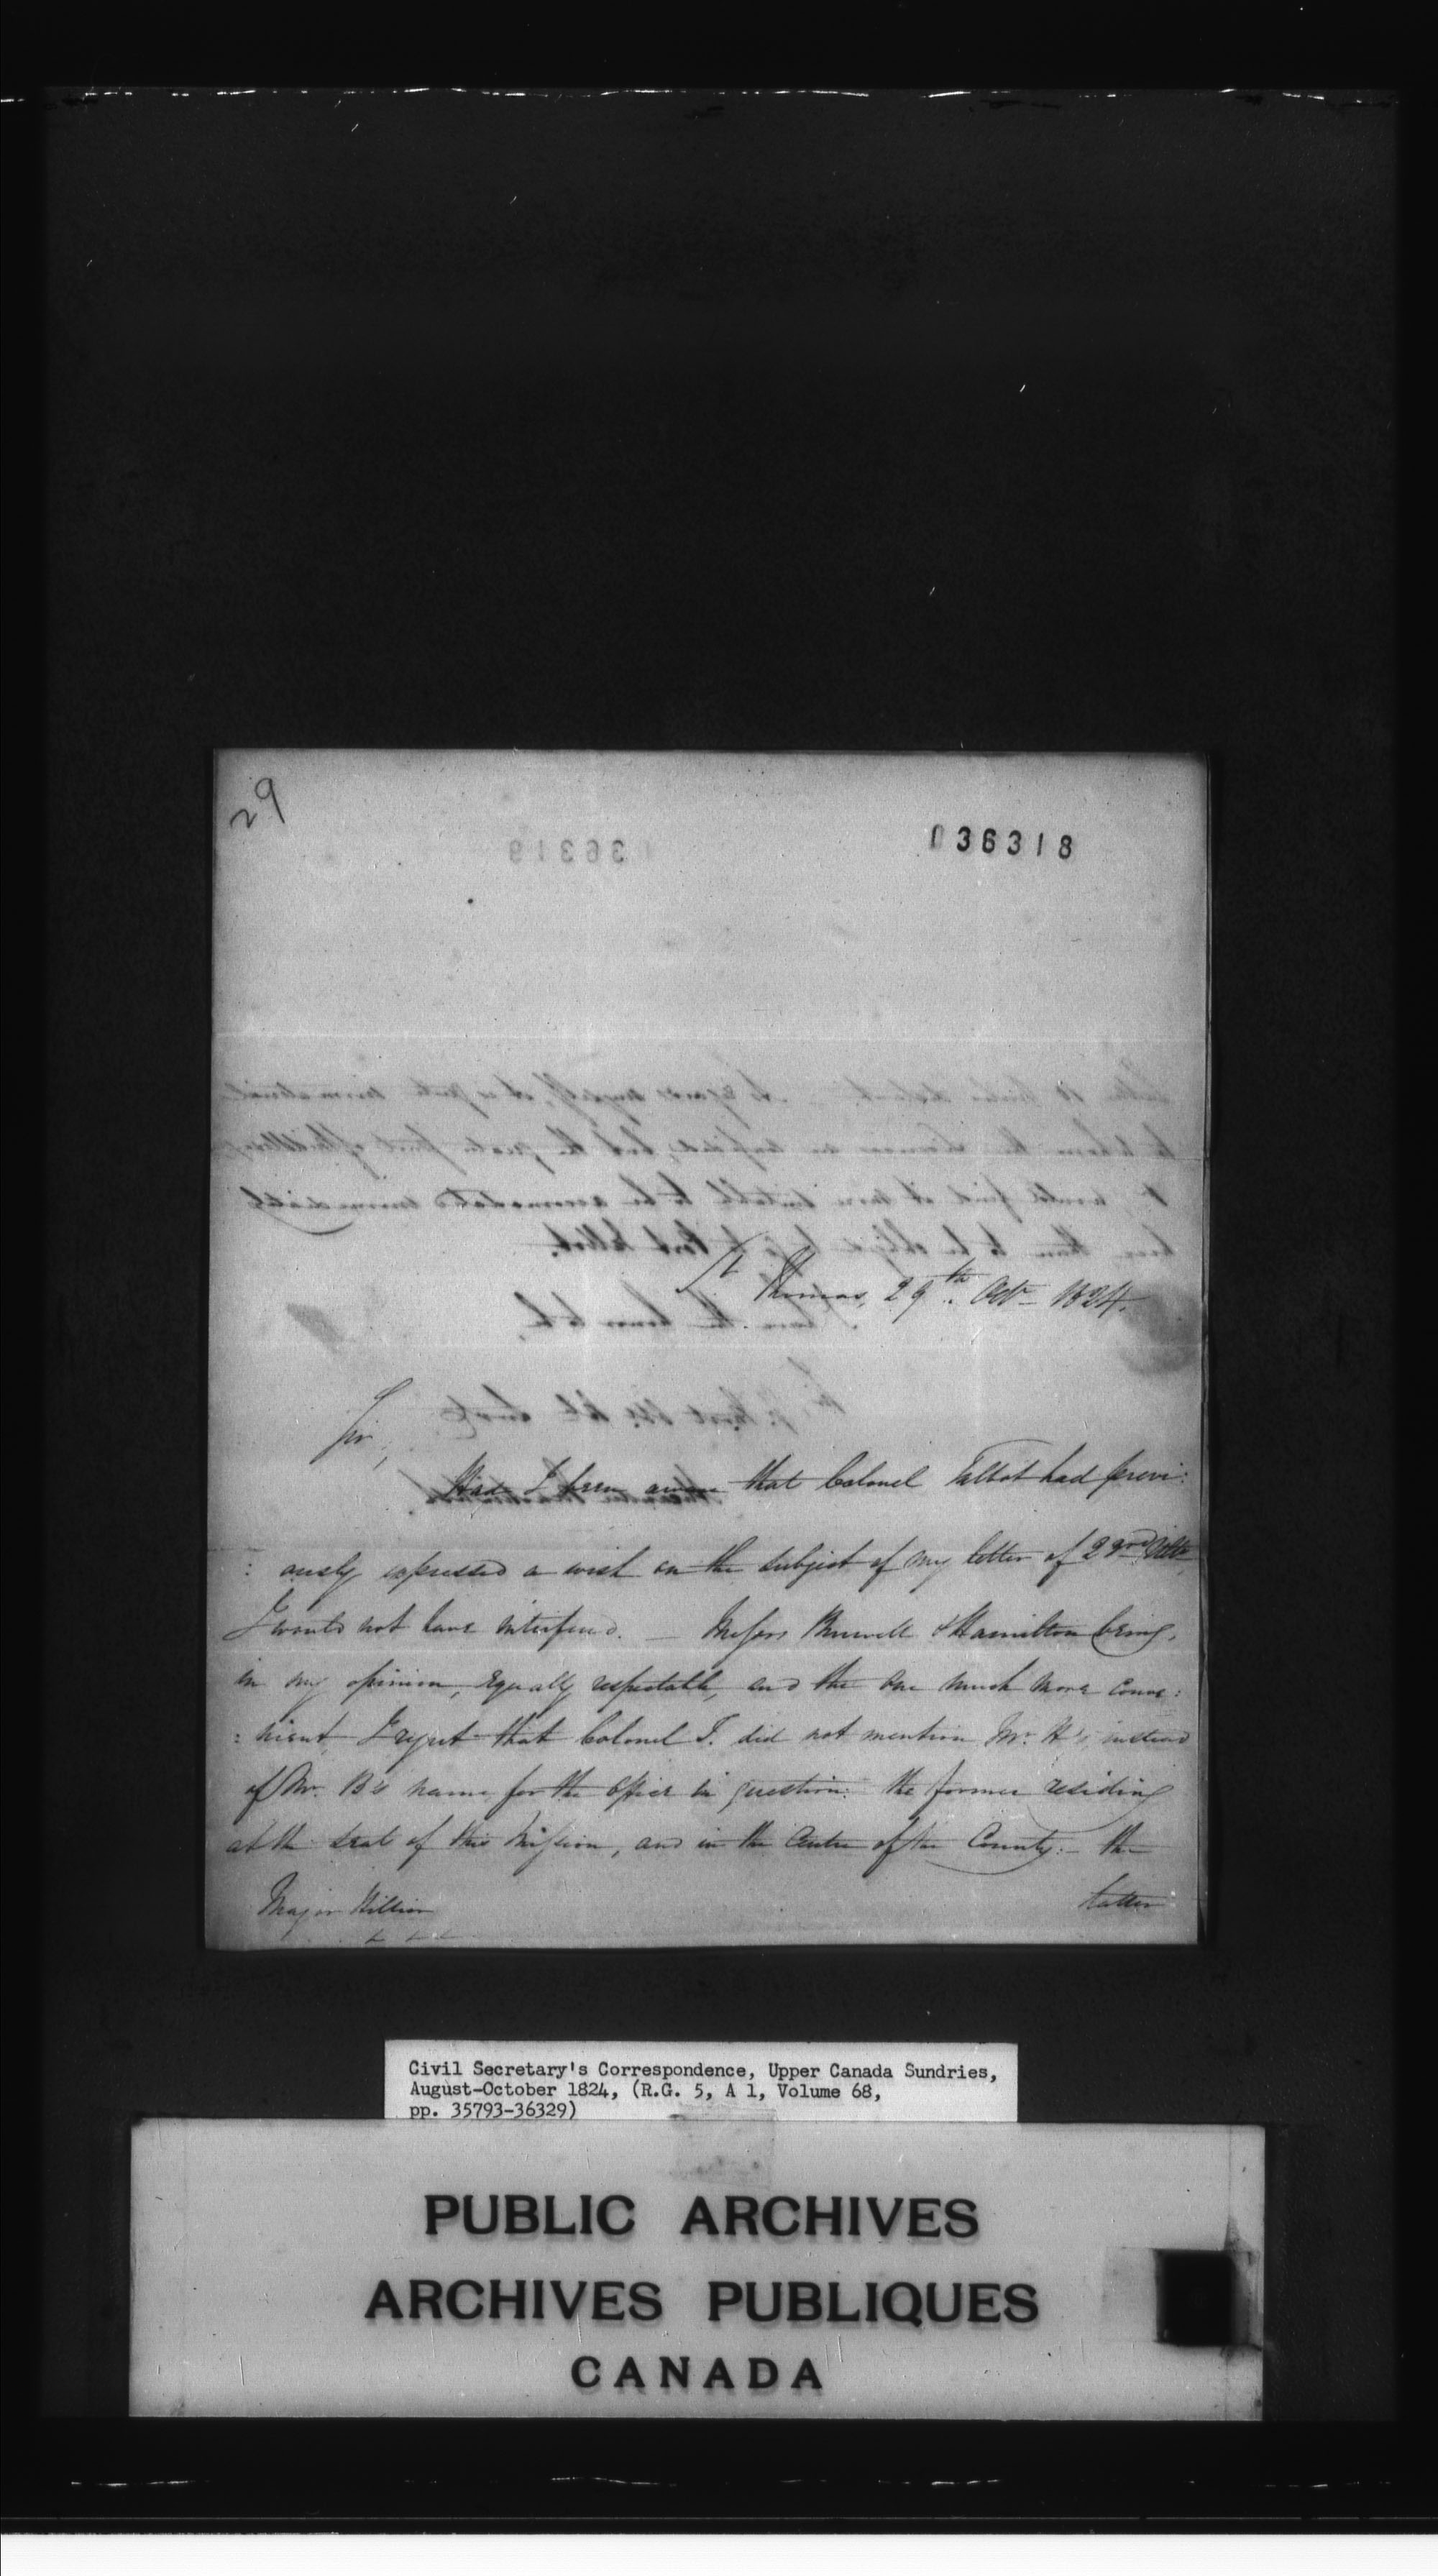 29
036318
St Thomas, 29th. Octr 1824.
Sir,
Had I been aware that Colonel Talbot had previ:
: ously expressed a wish on the subject of my letter of 23rd Ulto,
I would not have interfered. — Messrs Burwell & Hamilton being,
in my opinion, equally respectable, and the one much more conve:
: nient, I regret that Colonel T. did not mention Mr. H's, instead
of Mr. B's name for the office in question: the former residing
at the seat of this Mission, and in the Centre of the County:— the
latter
Major Hillier
Civil Secretary's Correspondence, Upper Canada Sundries,
August-October 1824, (R.G. 5, A 1, Volume 68,
pp. 35793-36329)
PUBLIC ARCHIVES
ARCHIVES PUBLIQUES
CANADA